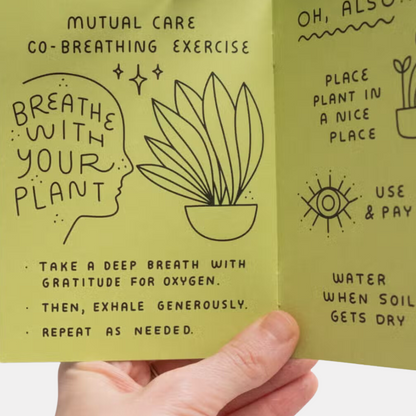 MUTUAL CARE
CO-BREATHING EXERCISE
BREATHE
WITH
YOUR
PLANT
· TAKE A DEEP BREATH WITH
GRATITUDE FOR OXYGEN.
· THEN, EXHALE GENEROUSLY.
· REPEAT AS NEEDED.
OH, ALSO
PLACE
PLANT IN
A NICE
PLACE
USE
& PAY
WATER
WHEN SOIL
GETS DRY